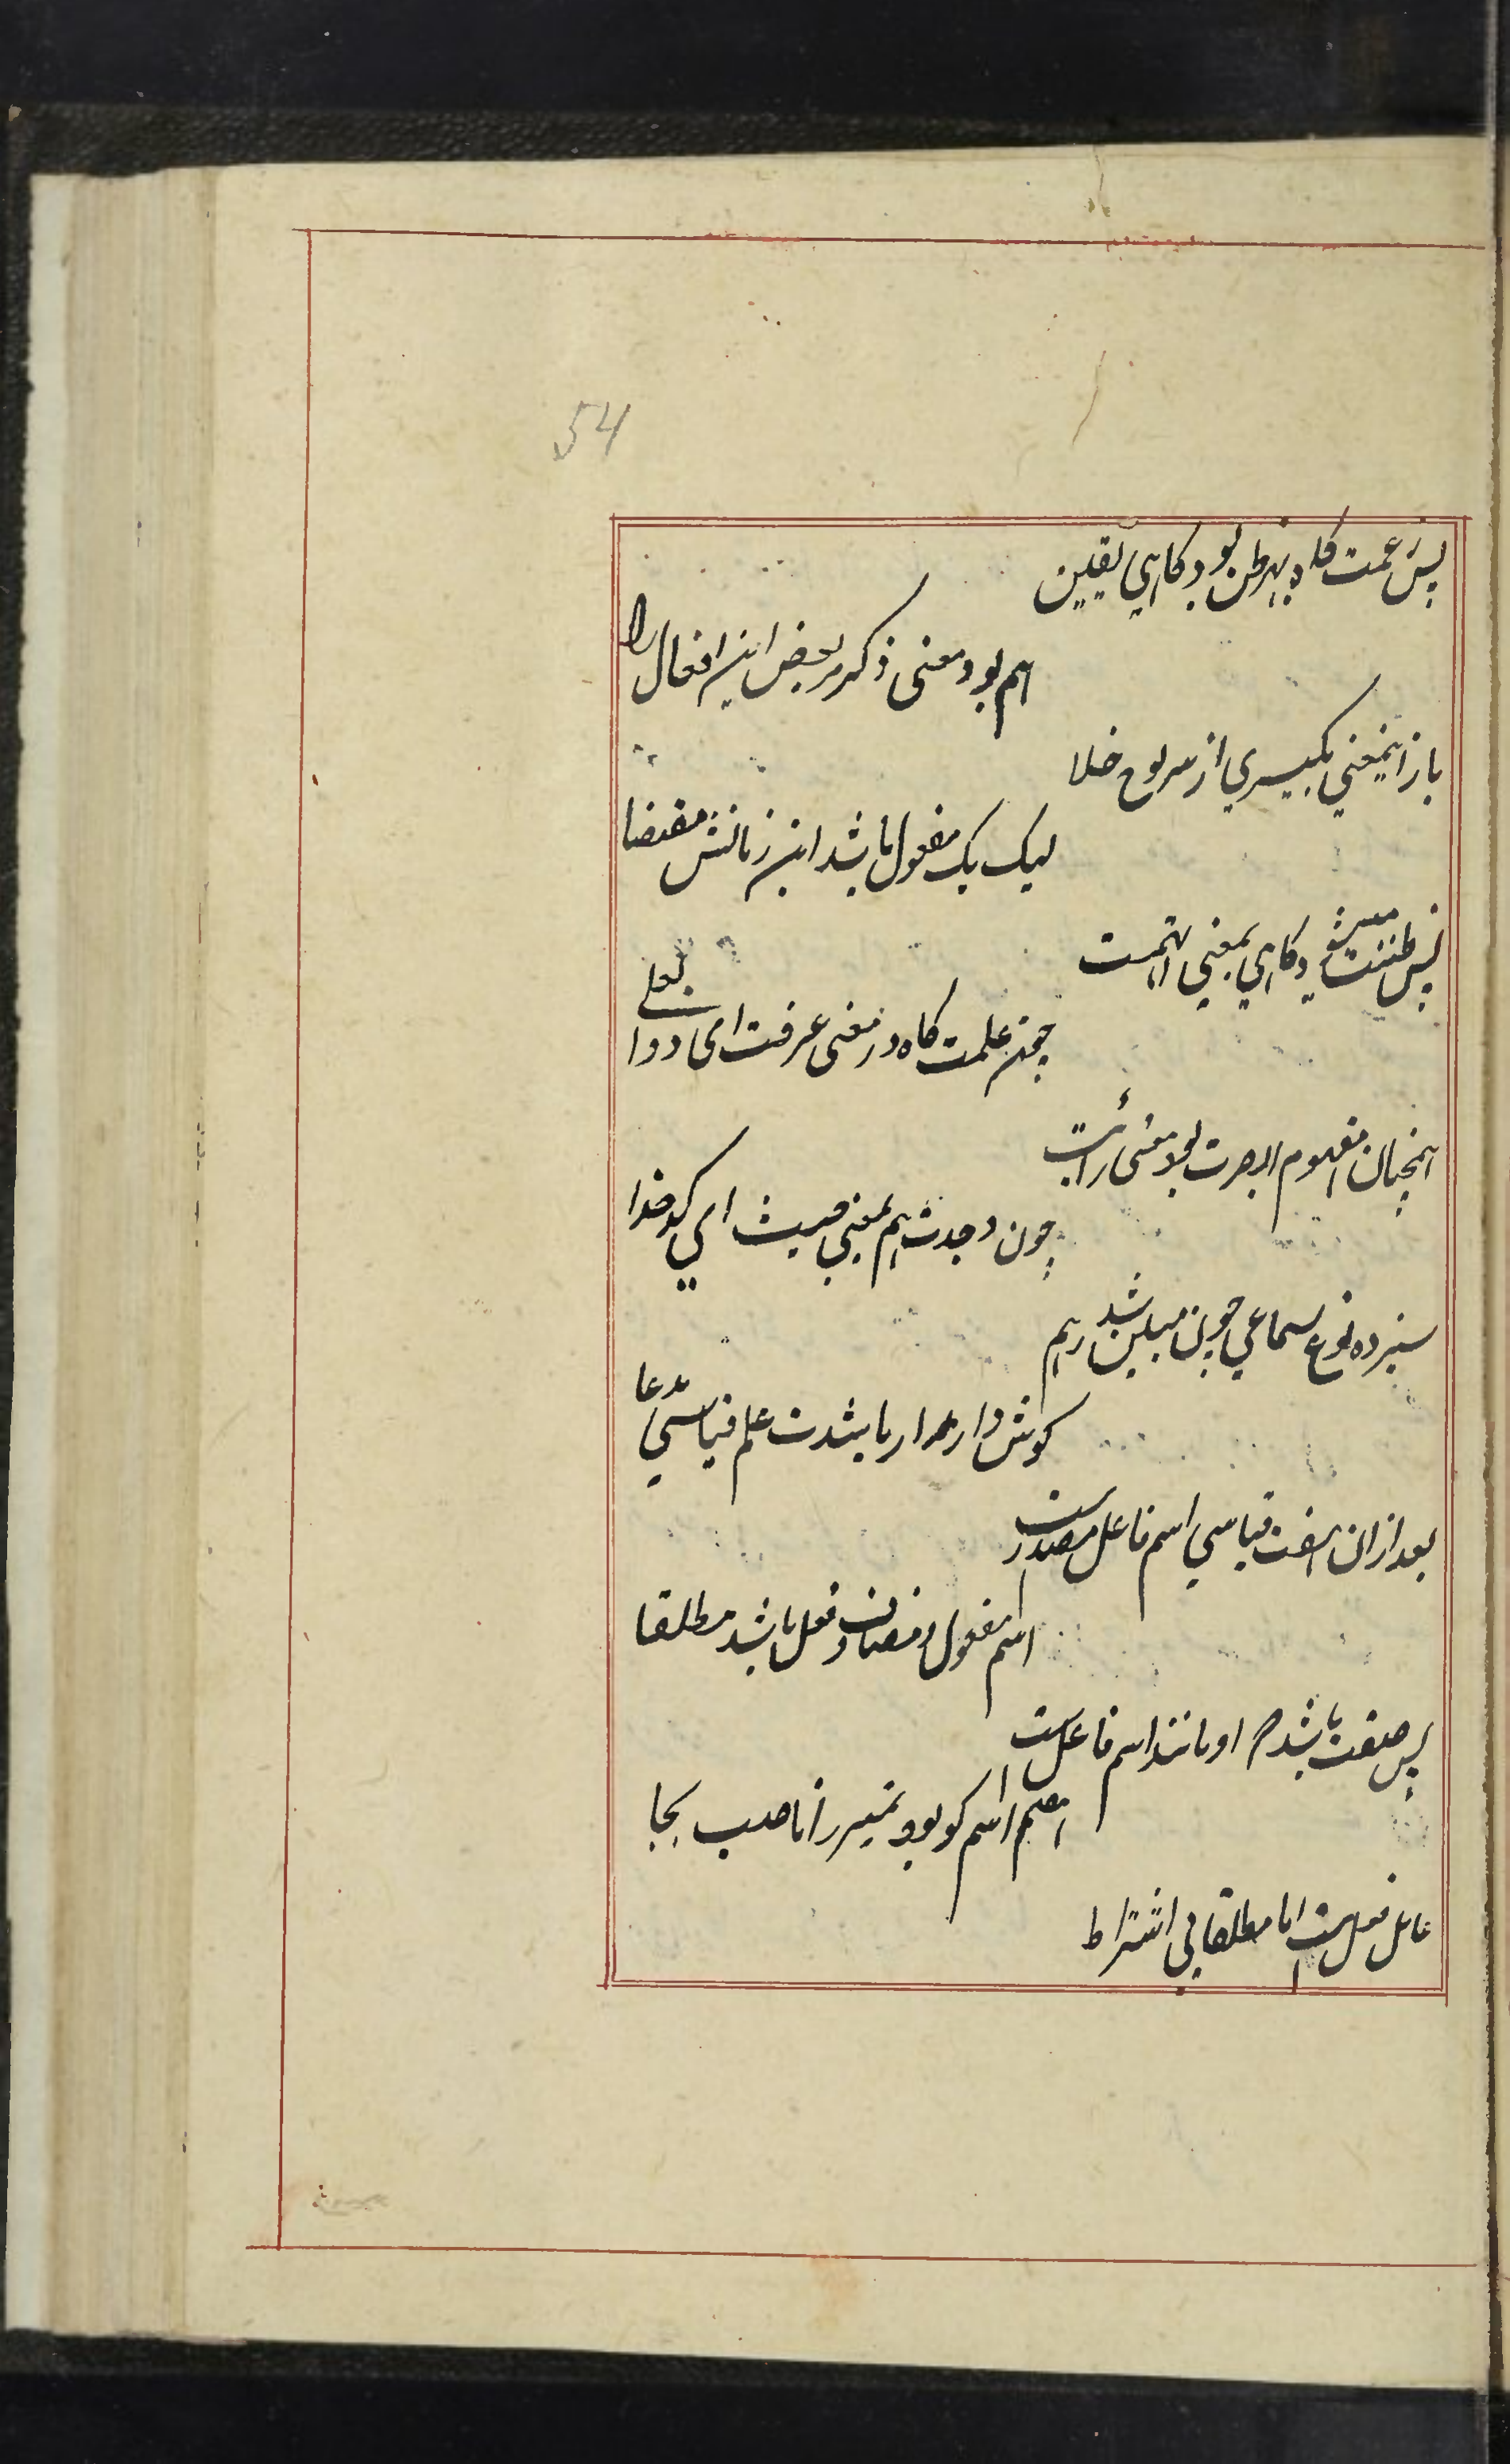 54
پس زعمت گاه بهر ظن بود گاهی یقین
هم بود معنی ذکر مر بعض این افعال را
باز اینمعنی بگیری از سر نوع خلا
لیک یک مفعول باشد این زمانش مقتضا
پس ظننت میشود گاهی بمعنی اتهمت
چون علمت گاه در معنی عرفت ای دوا بعلے
همچنان مفهوم ابصرت بود معنی رأیت
چون وجدت هم بمعنی اصبت ای کدخدا
سیزده نوع سماعی چون مبین شد
گوش دار علم قیاسی مدعا
بعد ازان هفت قیاسی اسم فاعل مصدرست
اسم مفعول و مضاف و فعل باشد مطلقا
پس صفت باشد که او مانند اسم فاعل است
هفتم اسم کو بود تمییز را ناصب بجا
عامل فعل است اما مطلقا بی اشتراط